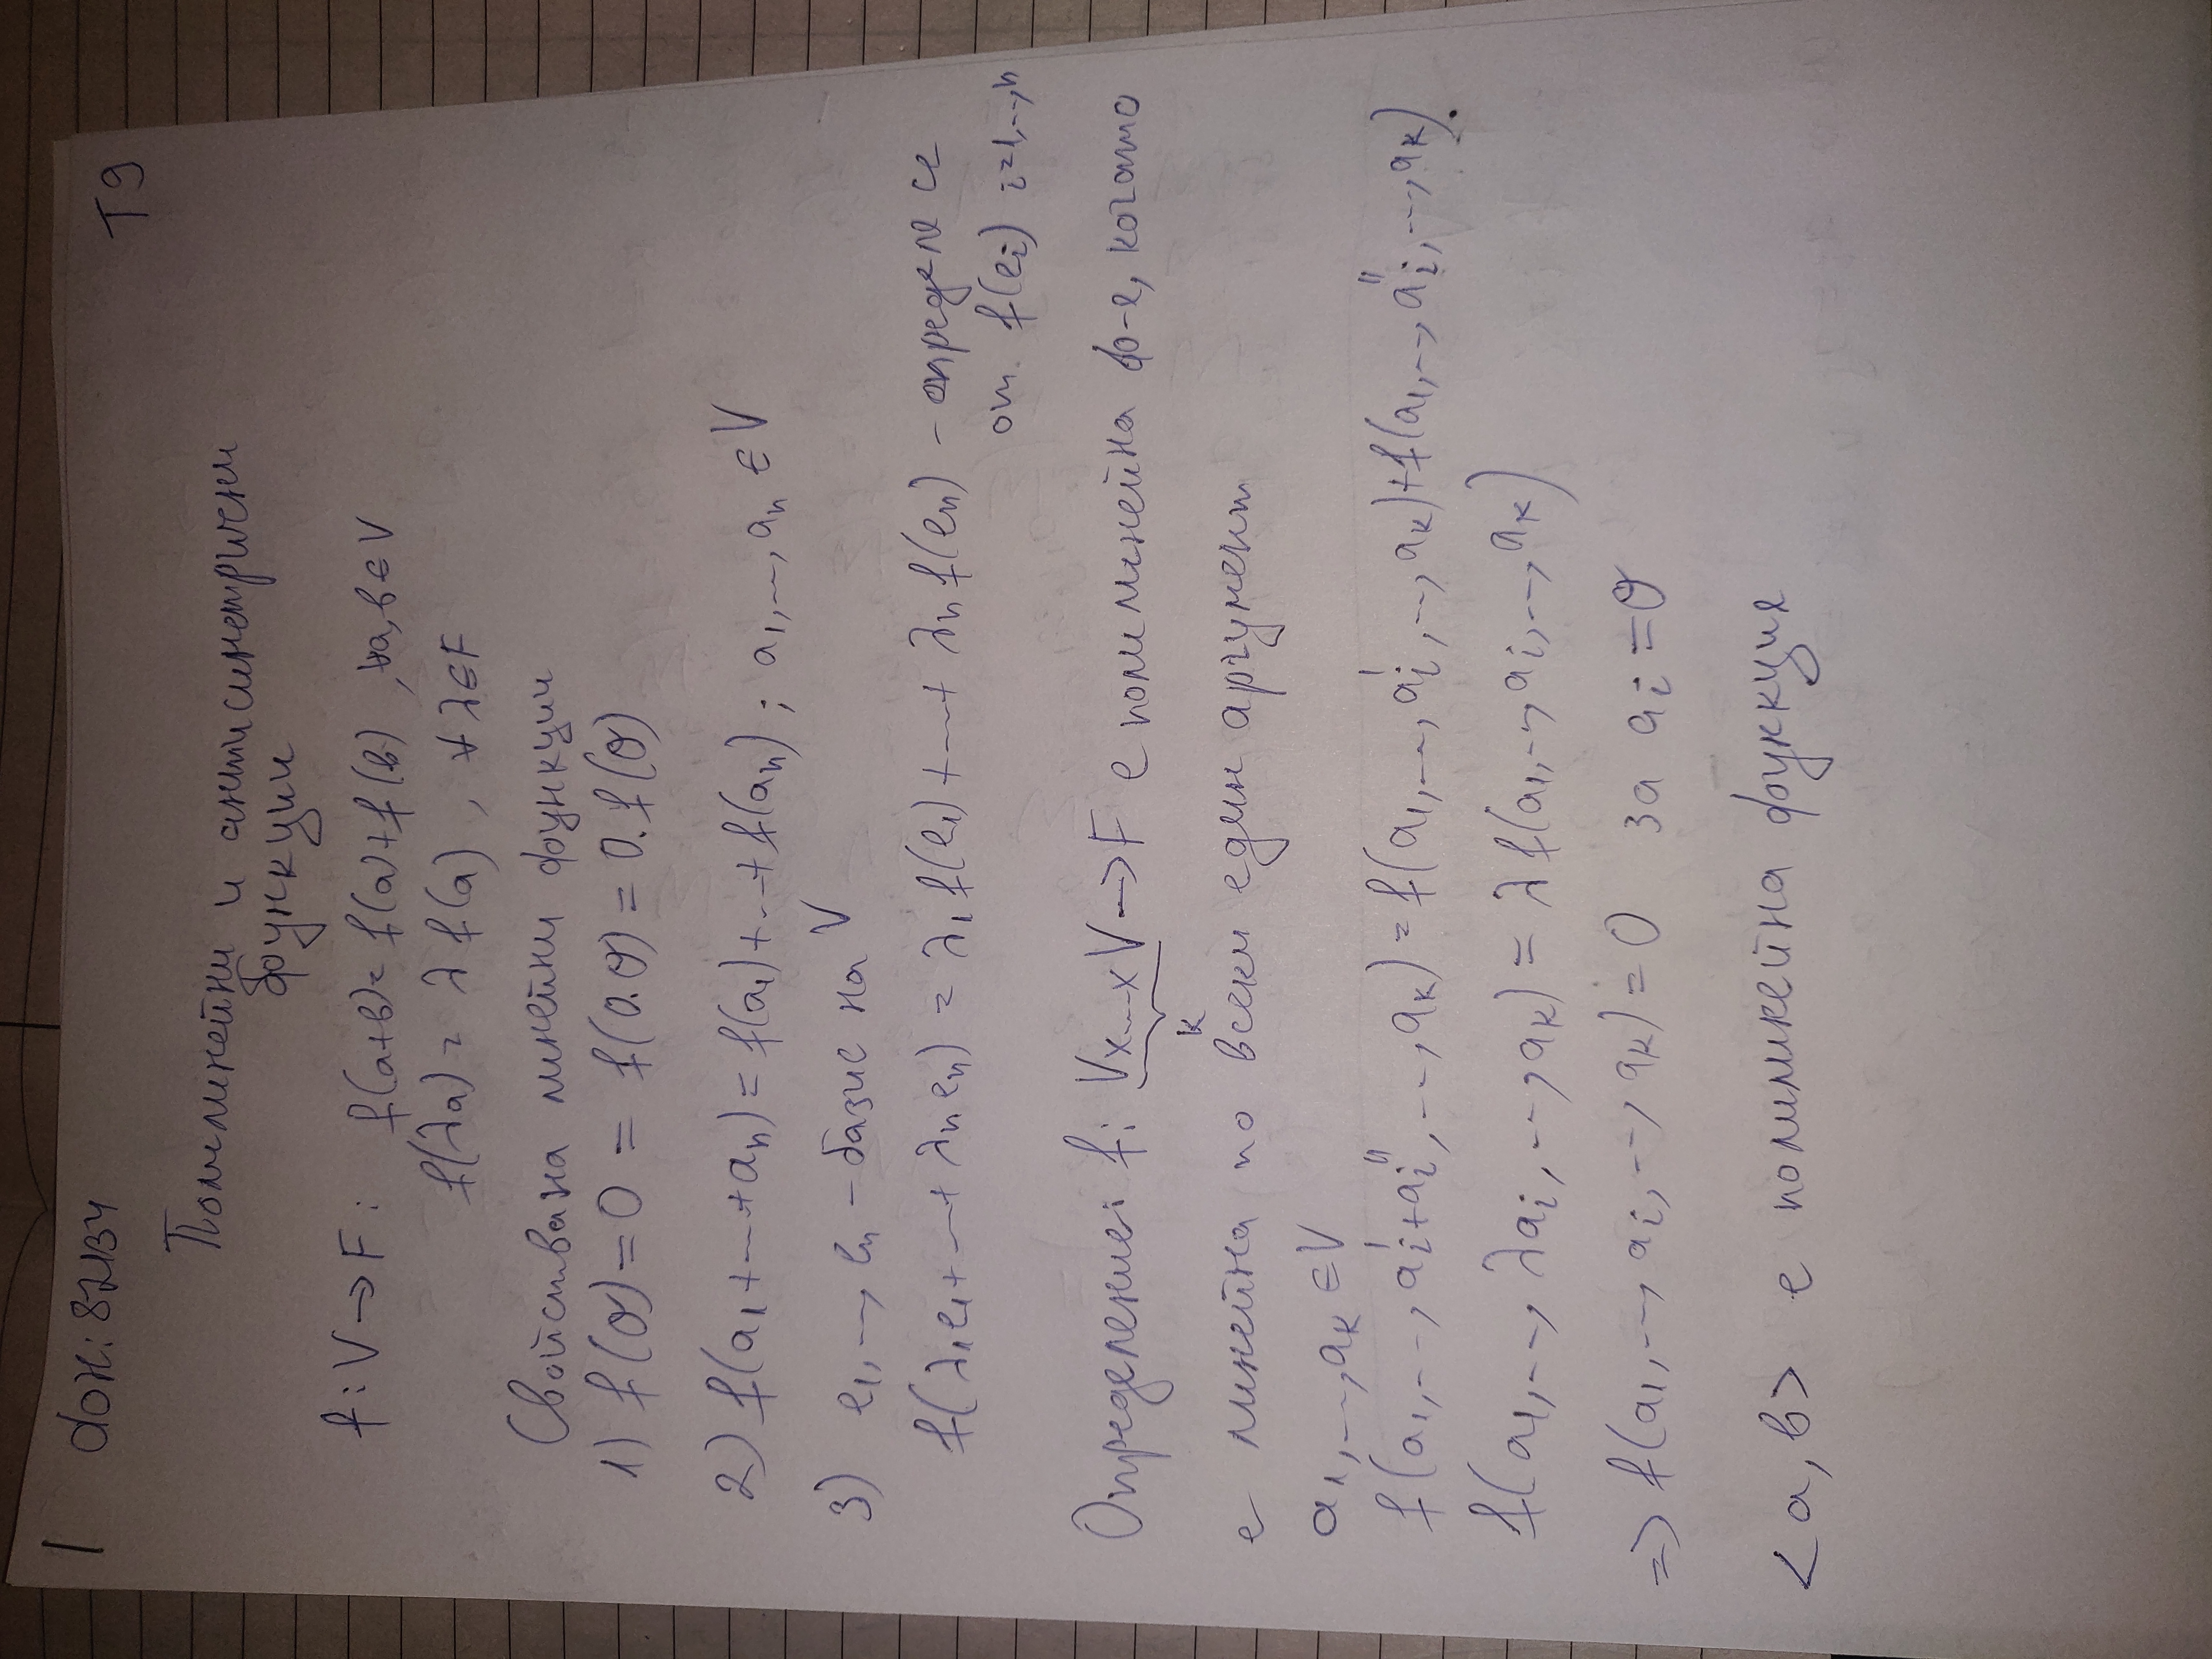 1 фон: 82134 Т9
Полилинейни и антисиметрични
функции
f: V → F: f(a+b) = f(a)+f(b), ∀a,b∈V
f(λa) = λ f(a), ∀ λ∈F
Свойства на линейни функции
1) f(σ) = 0 = f(0.σ) = 0.f(σ)
2) f(a₁+...+aₙ) = f(a₁)+...+f(aₙ); a₁,...,aₙ ∈ V
3) e₁,...,eₙ - базис на V
f(λ₁e₁+...+λₙeₙ) = λ₁f(e₁)+...+λₙf(eₙ) - определя се
от f(eᵢ) i=1,...,n
Определение: f: V×...×V → F е полилинейна ф-я, когато
k
е линейна по всеки един аргумент
a₁,...,aₖ ∈ V
f(a₁,...,aᵢ'+aᵢ'',...,aₖ) = f(a₁,...,aᵢ',...,aₖ)+f(a₁,...,aᵢ'',...,aₖ).
f(a₁,...,λaᵢ,...,aₖ) = λf(a₁,...,aᵢ,...,aₖ)
=> f(a₁,...,aᵢ,...,aₖ) = 0 за aᵢ = σ
<a,b> е полилинейна функция